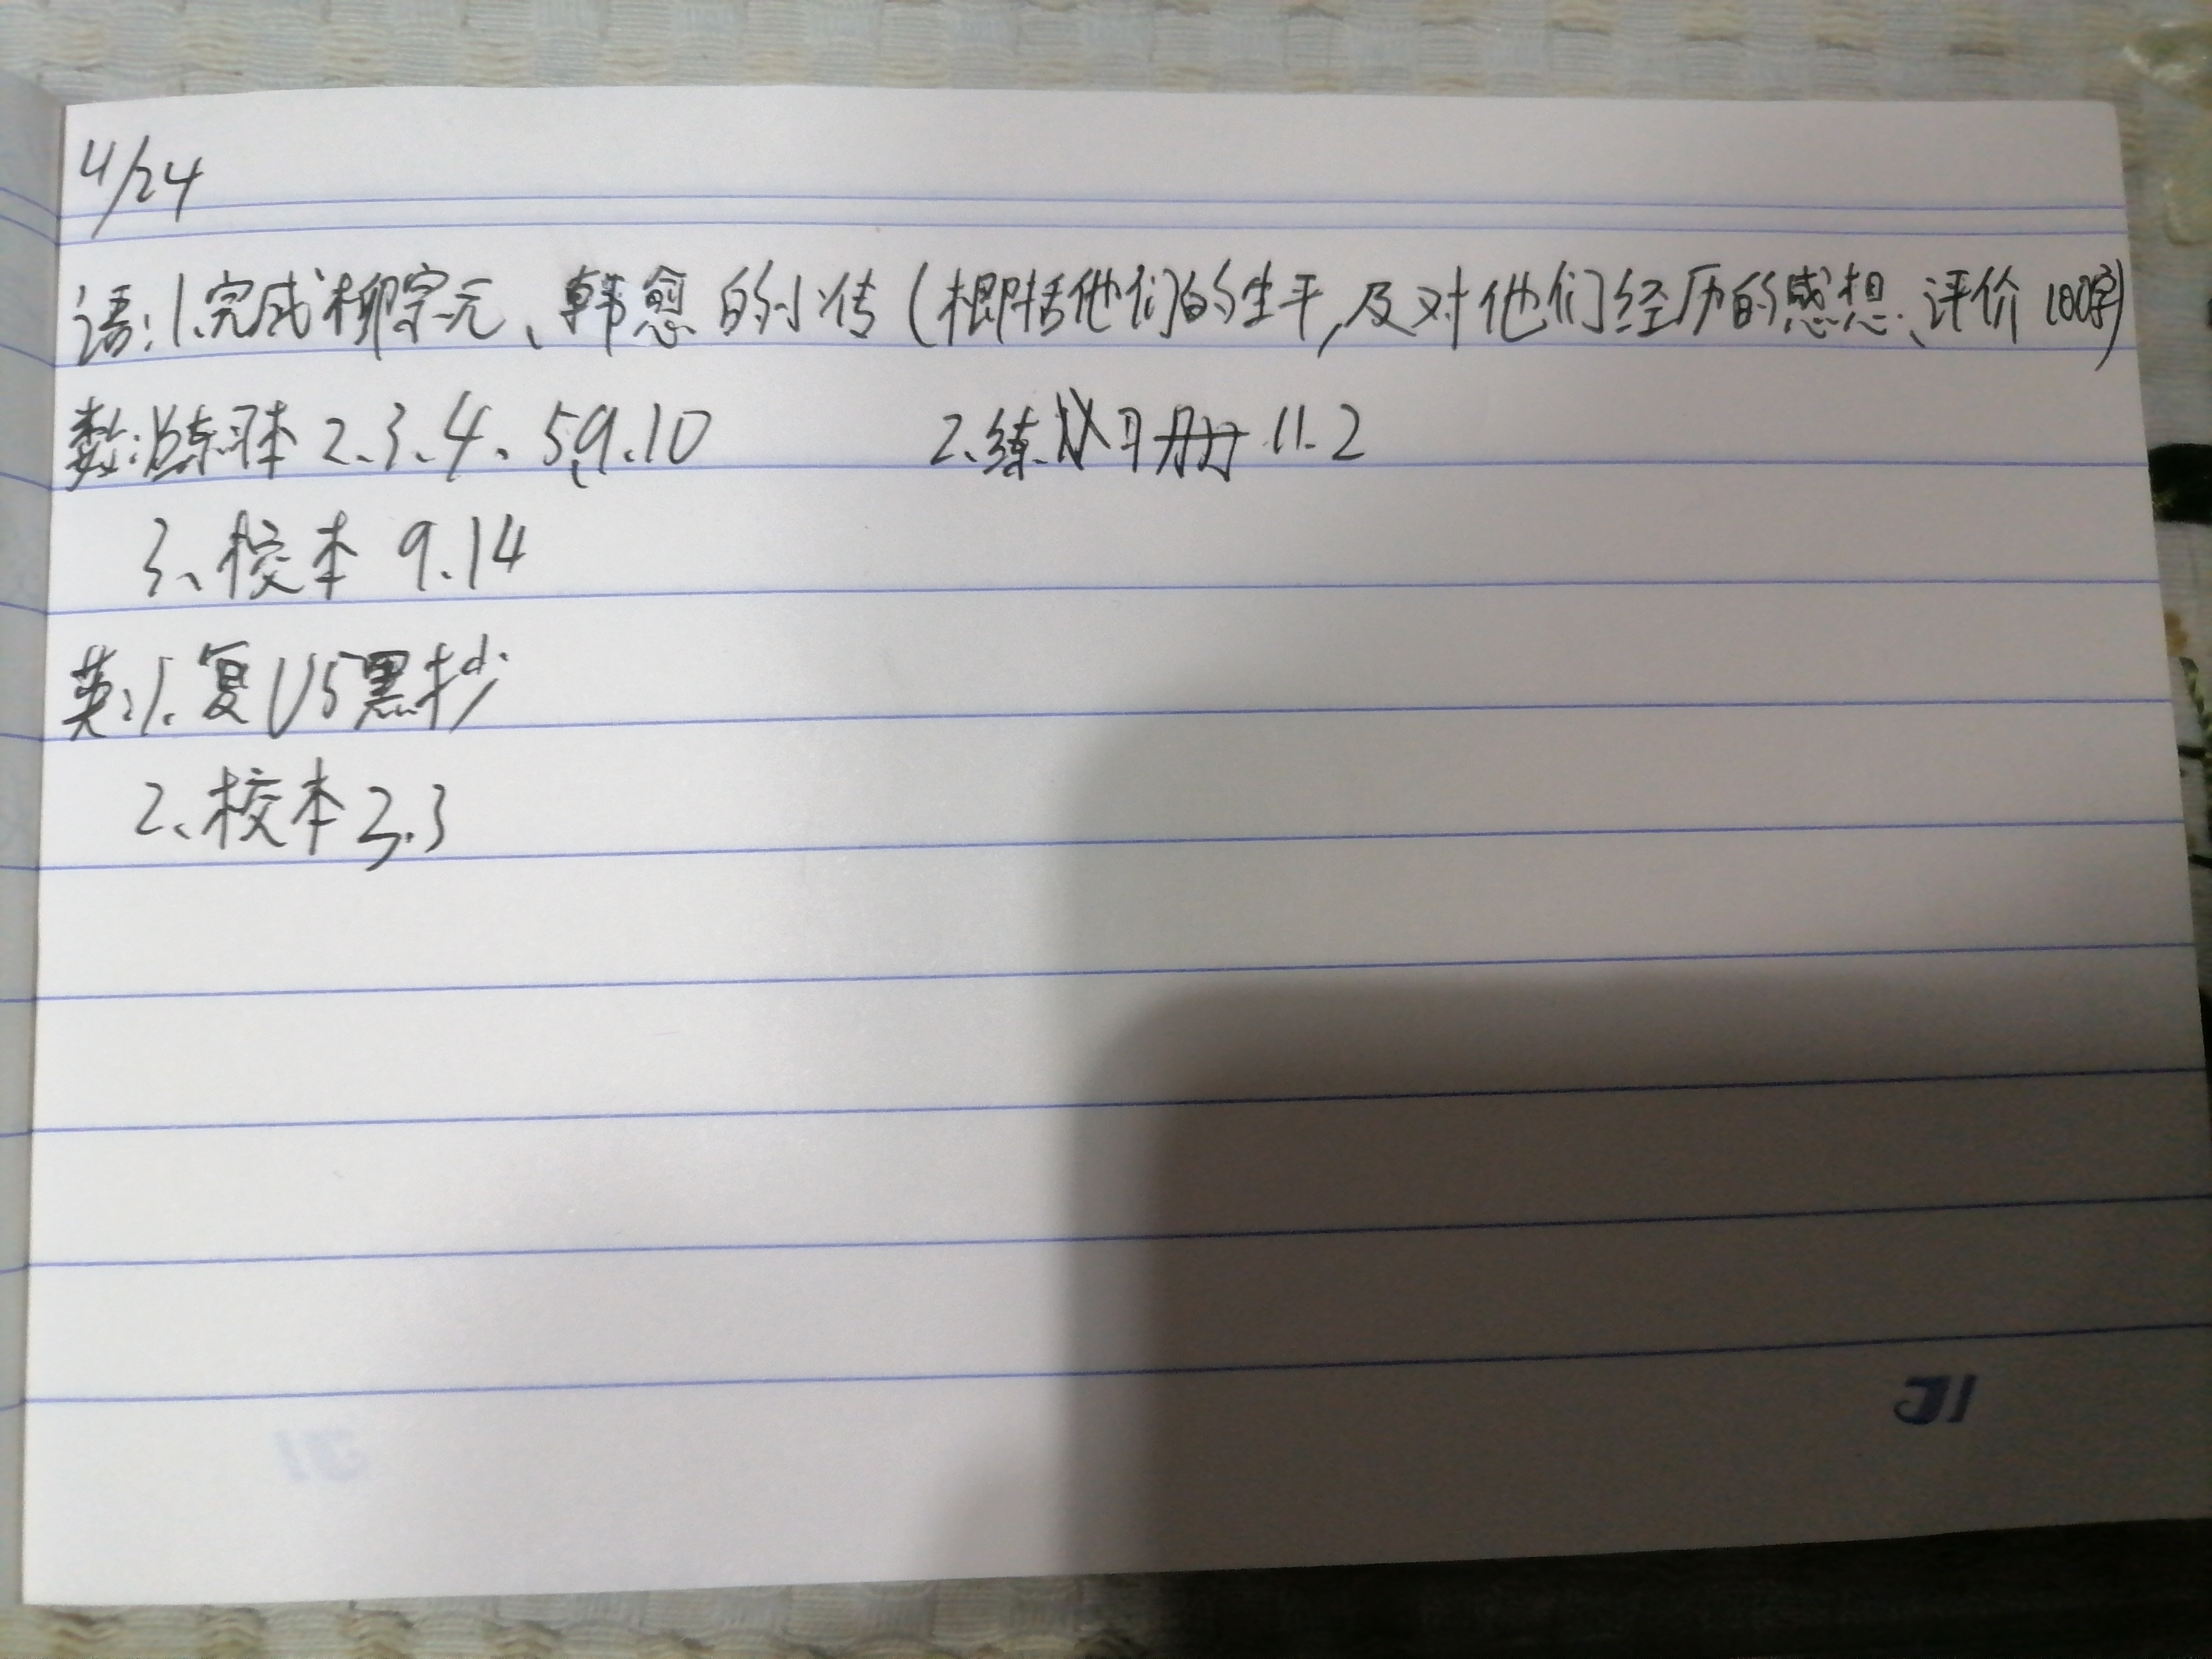 4/24
语:1.完成柳宗元、韩愈的小传(概括他们的生平,及对他们经历的感想、评价100字)
数:1.练习本 2、3、4、5、9、10 2、练习册 11.2
3、校本 9、14
英:1.复U5黑抄
2、校本2、3